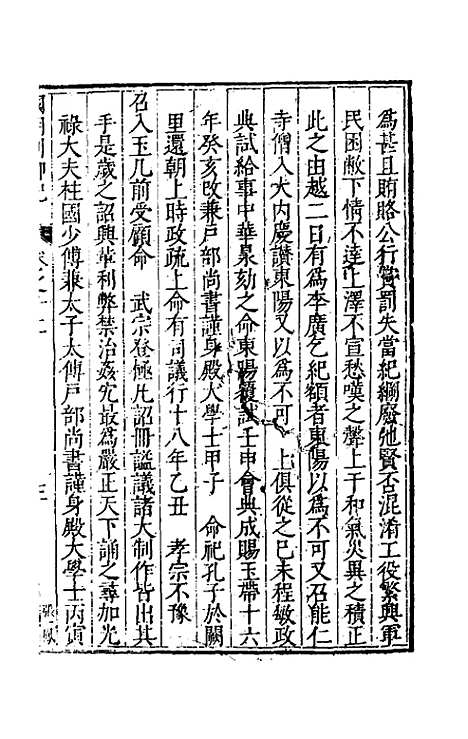 為甚且賄賂公行賞罰失當紀綱廢弛賢否混淆工役繁興軍
民困敝下情不達上澤不宣愁嘆之聲上干和氣災異之積正
此之由越二日有為李廣乞祠額者東陽以為不可又召能仁
寺僧入大內慶讚東陽又以為不可　上俱從之己未程敏政
典試給事中華㫤劾之命東陽覆試壬申會典成賜玉帶十六
年癸亥改兼戶部尚書謹身殿大學士甲子　命祀孔子於闕
里還朝上時政疏上命有司議行十八年乙丑　孝宗不豫
召入玉几前受顧命　武宗登極凡詔冊謚議諸大制作皆出其
手是歲之詔興革利弊禁治姦宄最為嚴正天下誦之尋加光
祿大夫柱國少傅兼太子太傅戶部尚書謹身殿大學士丙寅
卷之十二
三